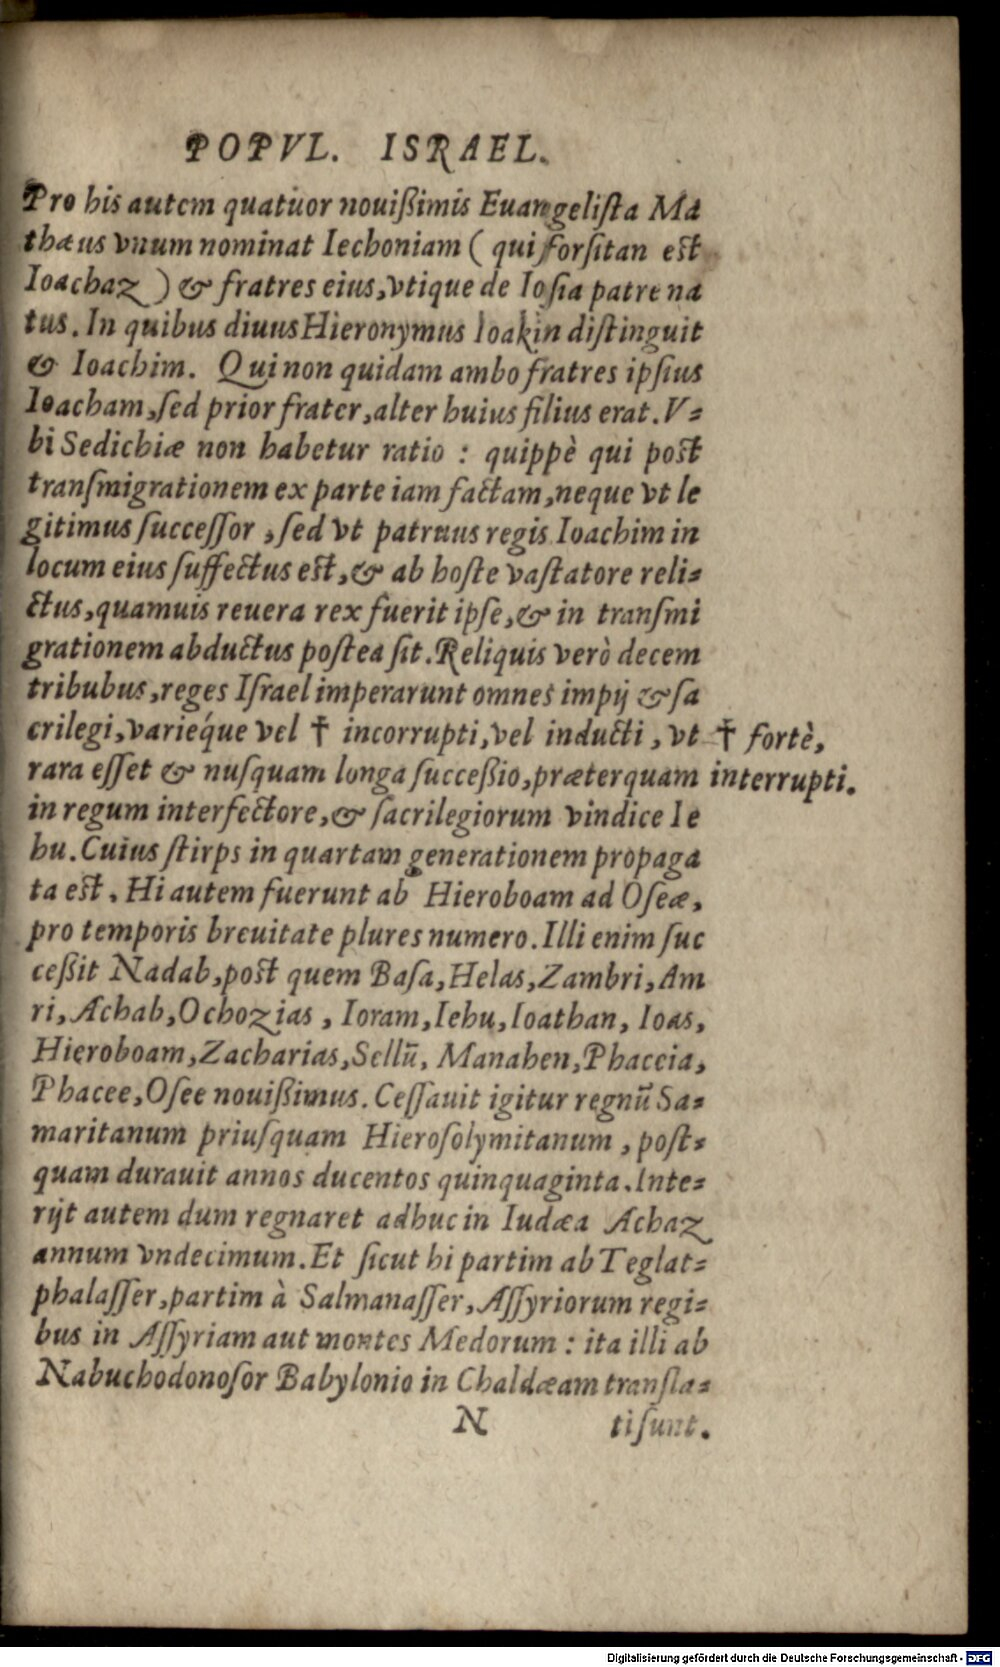 POPVL. ISRAEL.
Pro his autem quatuor nouißimis Euangelista Ma
thæus vnum nominat Iechoniam ( qui forsitan est
Ioachaz ) & fratres eius, vtique de Iosia patre na
tus. In quibus diuus Hieronymus Ioakin distinguit
& Ioachim. Qui non quidam ambo fratres ipsius
Ioacham, sed prior frater, alter huius filius erat. V-
bi Sedichiæ non habetur ratio : quippè qui post
transmigrationem ex parte iam factam, neque vt le
gitimus successor , sed vt patruus regis Ioachim in
locum eius suffectus est, & ab hoste vastatore reli-
ctus, quamuis reuera rex fuerit ipse, & in transmi
grationem abductus postea sit. Reliquis verò decem
tribubus, reges Israel imperarunt omnes impij & sa
crilegi, varieq́ue vel † incorrupti, vel inducti , vt † fortè,
rara esset & nusquam longa succeßio, præterquam interrupti.
in regum interfectore, & sacrilegiorum vindice Ie
hu. Cuius stirps in quartam generationem propaga
ta est. Hi autem fuerunt ab Hieroboam ad Oseæ,
pro temporis breuitate plures numero. Illi enim suc
ceßit Nadab, post quem Basa, Helas, Zambri, Am
ri, Achab, Ochozias , Ioram, Iehu, Ioathan, Ioas,
Hieroboam, Zacharias, Sellū, Manahen, Phaceia,
Phacee, Osee nouißimus. Cessauit igitur regnū Sa-
maritanum priusquam Hierosolymitanum , post-
quam durauit annos ducentos quinquaginta. Inte-
rijt autem dum regnaret adhuc in Iudæa Achaz
annum vndecimum. Et sicut hi partim ab Teglat-
phalasser, partim à Salmanasser, Assyriorum regi-
bus in Assyriam aut montes Medorum : ita illi ab
Nabuchodonosor Babylonio in Chaldæam transla-
N tisunt.
Digitalisierung gefördert durch die Deutsche Forschungsgemeinschaft - DFG